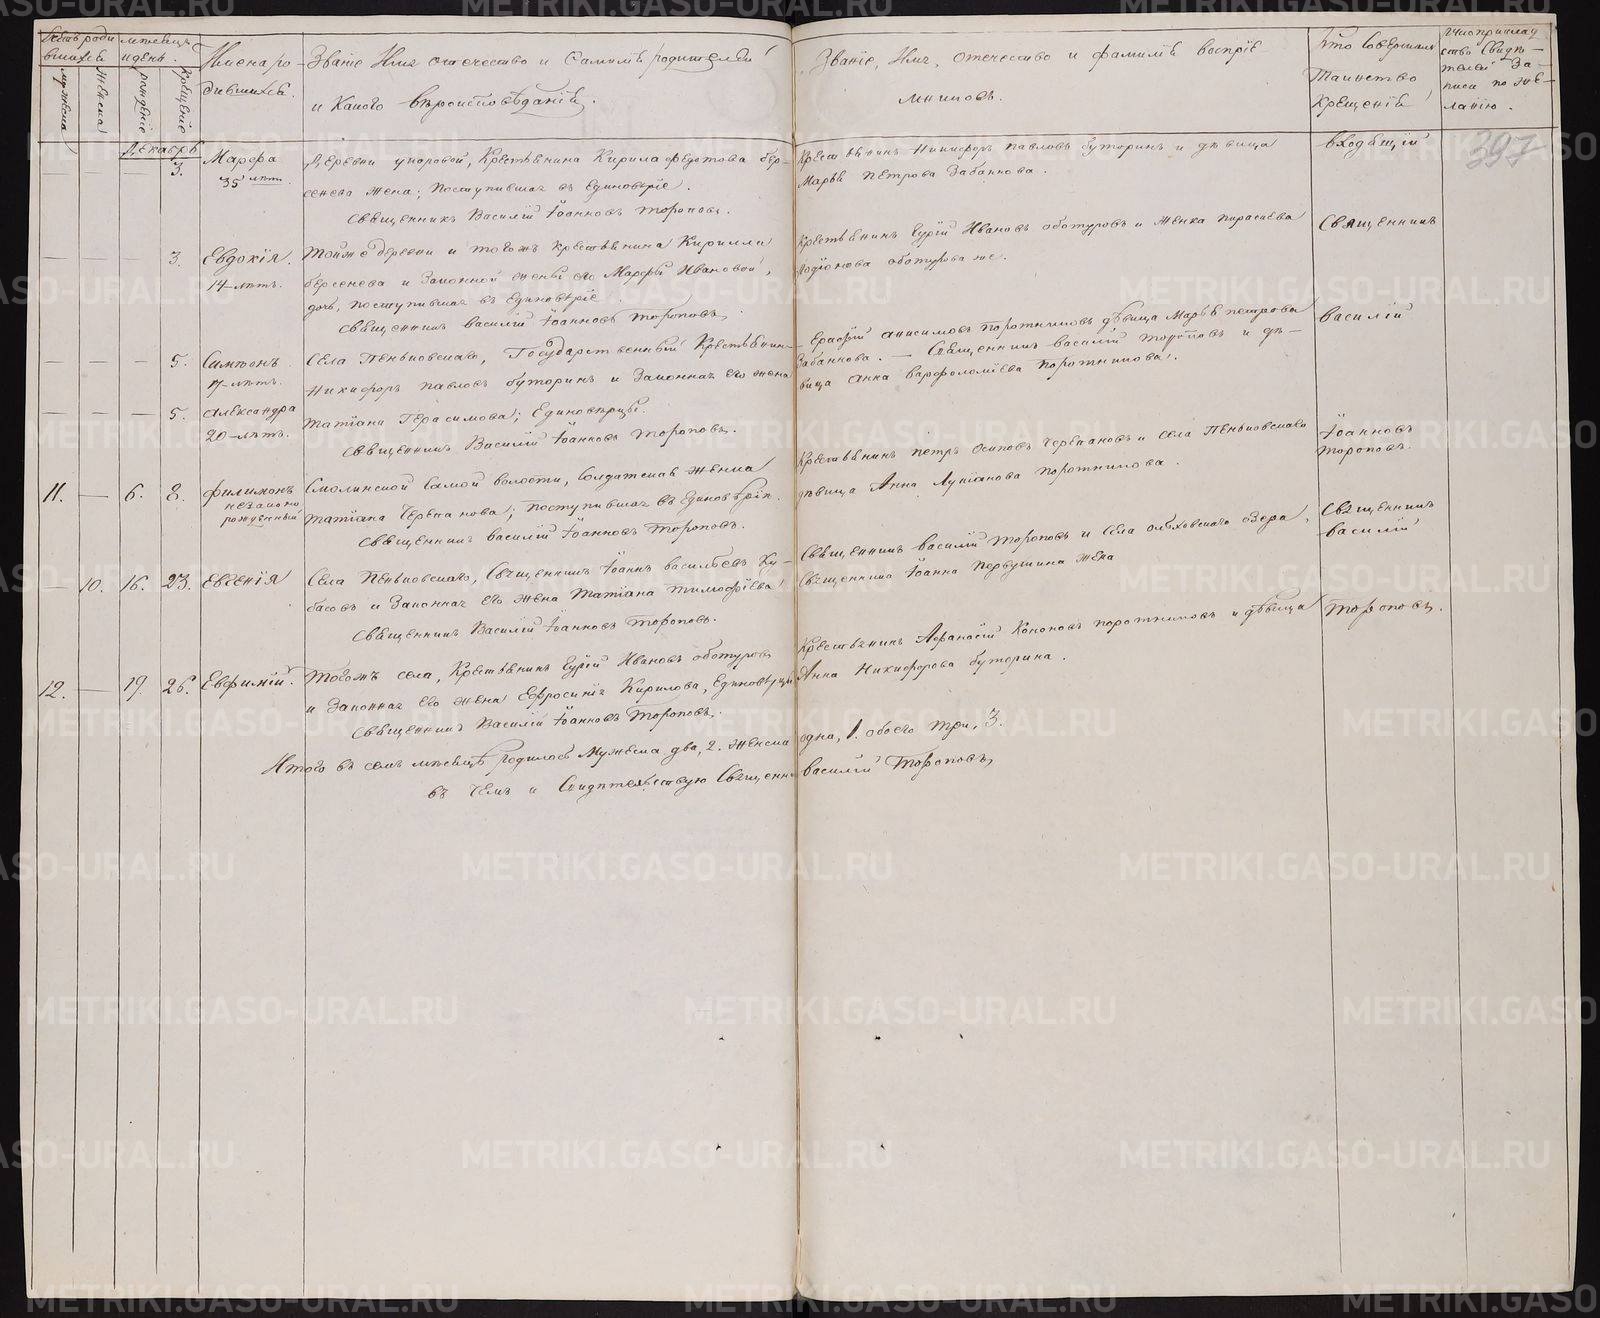 Счетъ роди
вшихся
мѣсяцъ
и день.
мужеска
женска
рожденіе
крещеніе
Имена ро-
дившихся.
Званіе Имя отечество и Фамилія родителей
и Какого вѣроисповѣданія.
Званіе, Имя, отечество и фамилія воспріе
мниковъ.
Кто Совершалъ
Таинство
Крещенія
Рукоприклад
ство Свидѣ-
телей За-
писи по Же-
ланію.
397
Декабрь
3. Марфа
35 лѣтъ.
Деревни Упоровой, Крестьянина Кирила Федотова бер-
сенева жена; Поступившая въ Единовѣріе.
Священникъ Василій Іоанновъ Тороповъ.
Крестьянинъ Никифоръ Павловъ буторинъ и дѣвица
Марья Петрова Забанкова.
входящій
— — — 3. Евдокія.
14-лѣтъ.
Тойже Деревни и тогожъ крестьянина Кирилла
берсенева и Законной жены его Марфы Ивановой,
дочь, поступившая въ Единовѣріе.
Священникъ Василій Іоанновъ Тороповъ.
Крестьянинъ Гурій Ивановъ оботуровъ и женка параскева
Родіонова оботурова же.
Священникъ
— — — 5. Симеонъ
17-лѣтъ.
Села Пеньковскаго, Государственный Крестьянин-
Никифоръ Павловъ буторинъ и Законная его жена
Ерафій Анисимовъ Поротниковъ дѣвица Марья петрова
Забанкова. — Священникъ Василій Тороповъ и дѣ-
вица Анна Варфоломѣева Поротникова.
Василій
— — — 5. Александра
20-лѣтъ.
Татіана Герасимова; Единовѣрцы.
Священникъ Василій Іоанновъ Тороповъ.
11. — 6. 8. Филимонъ
незаконно
рожденный
Смолинской Самой волости, Солдатская Женка
Татіана Черепанова; поступившая въ Единовѣріе.
Священникъ Василій Іоанновъ Тороповъ.
Крестьянинъ Петръ Осиповъ Черепановъ и Села Пеньковскаго
дѣвица Анна Лукіанова Поротникова.
Іоанновъ
Тороповъ.
— 10. 16. 23. Евгенія
Села Пеньковскаго, Священникъ Іоаннъ Васильевъ Ку-
басовъ и Законная Его жена Татіана Тимофѣева
Священникъ Василій Іоанновъ Тороповъ.
Священникъ Василій Тороповъ и Села Ольховскаго Озера,
Священника Іоанна Первушина жена
Священникъ
Василій
12. — 19. 26. Евфимій.
Тогожъ села, Крестьянинъ Гурій Ивановъ оботуровъ
и Законная его жена Ефросинія Кирилова, Единовѣрцы
Священникъ Василій Іоанновъ Тороповъ.
Крестьянинъ Афанасій Кононовъ поротниковъ и дѣвица
Анна Никифорова буторина.
Тороповъ.
Итого въ семъ мѣсяцѣ родилось Мужеска два, 2. женска одна, 1. обоего три, 3.
въ чемъ и Свидѣтельствую Священникъ Василій Тороповъ
METRIKI.GASO-URAL.RU